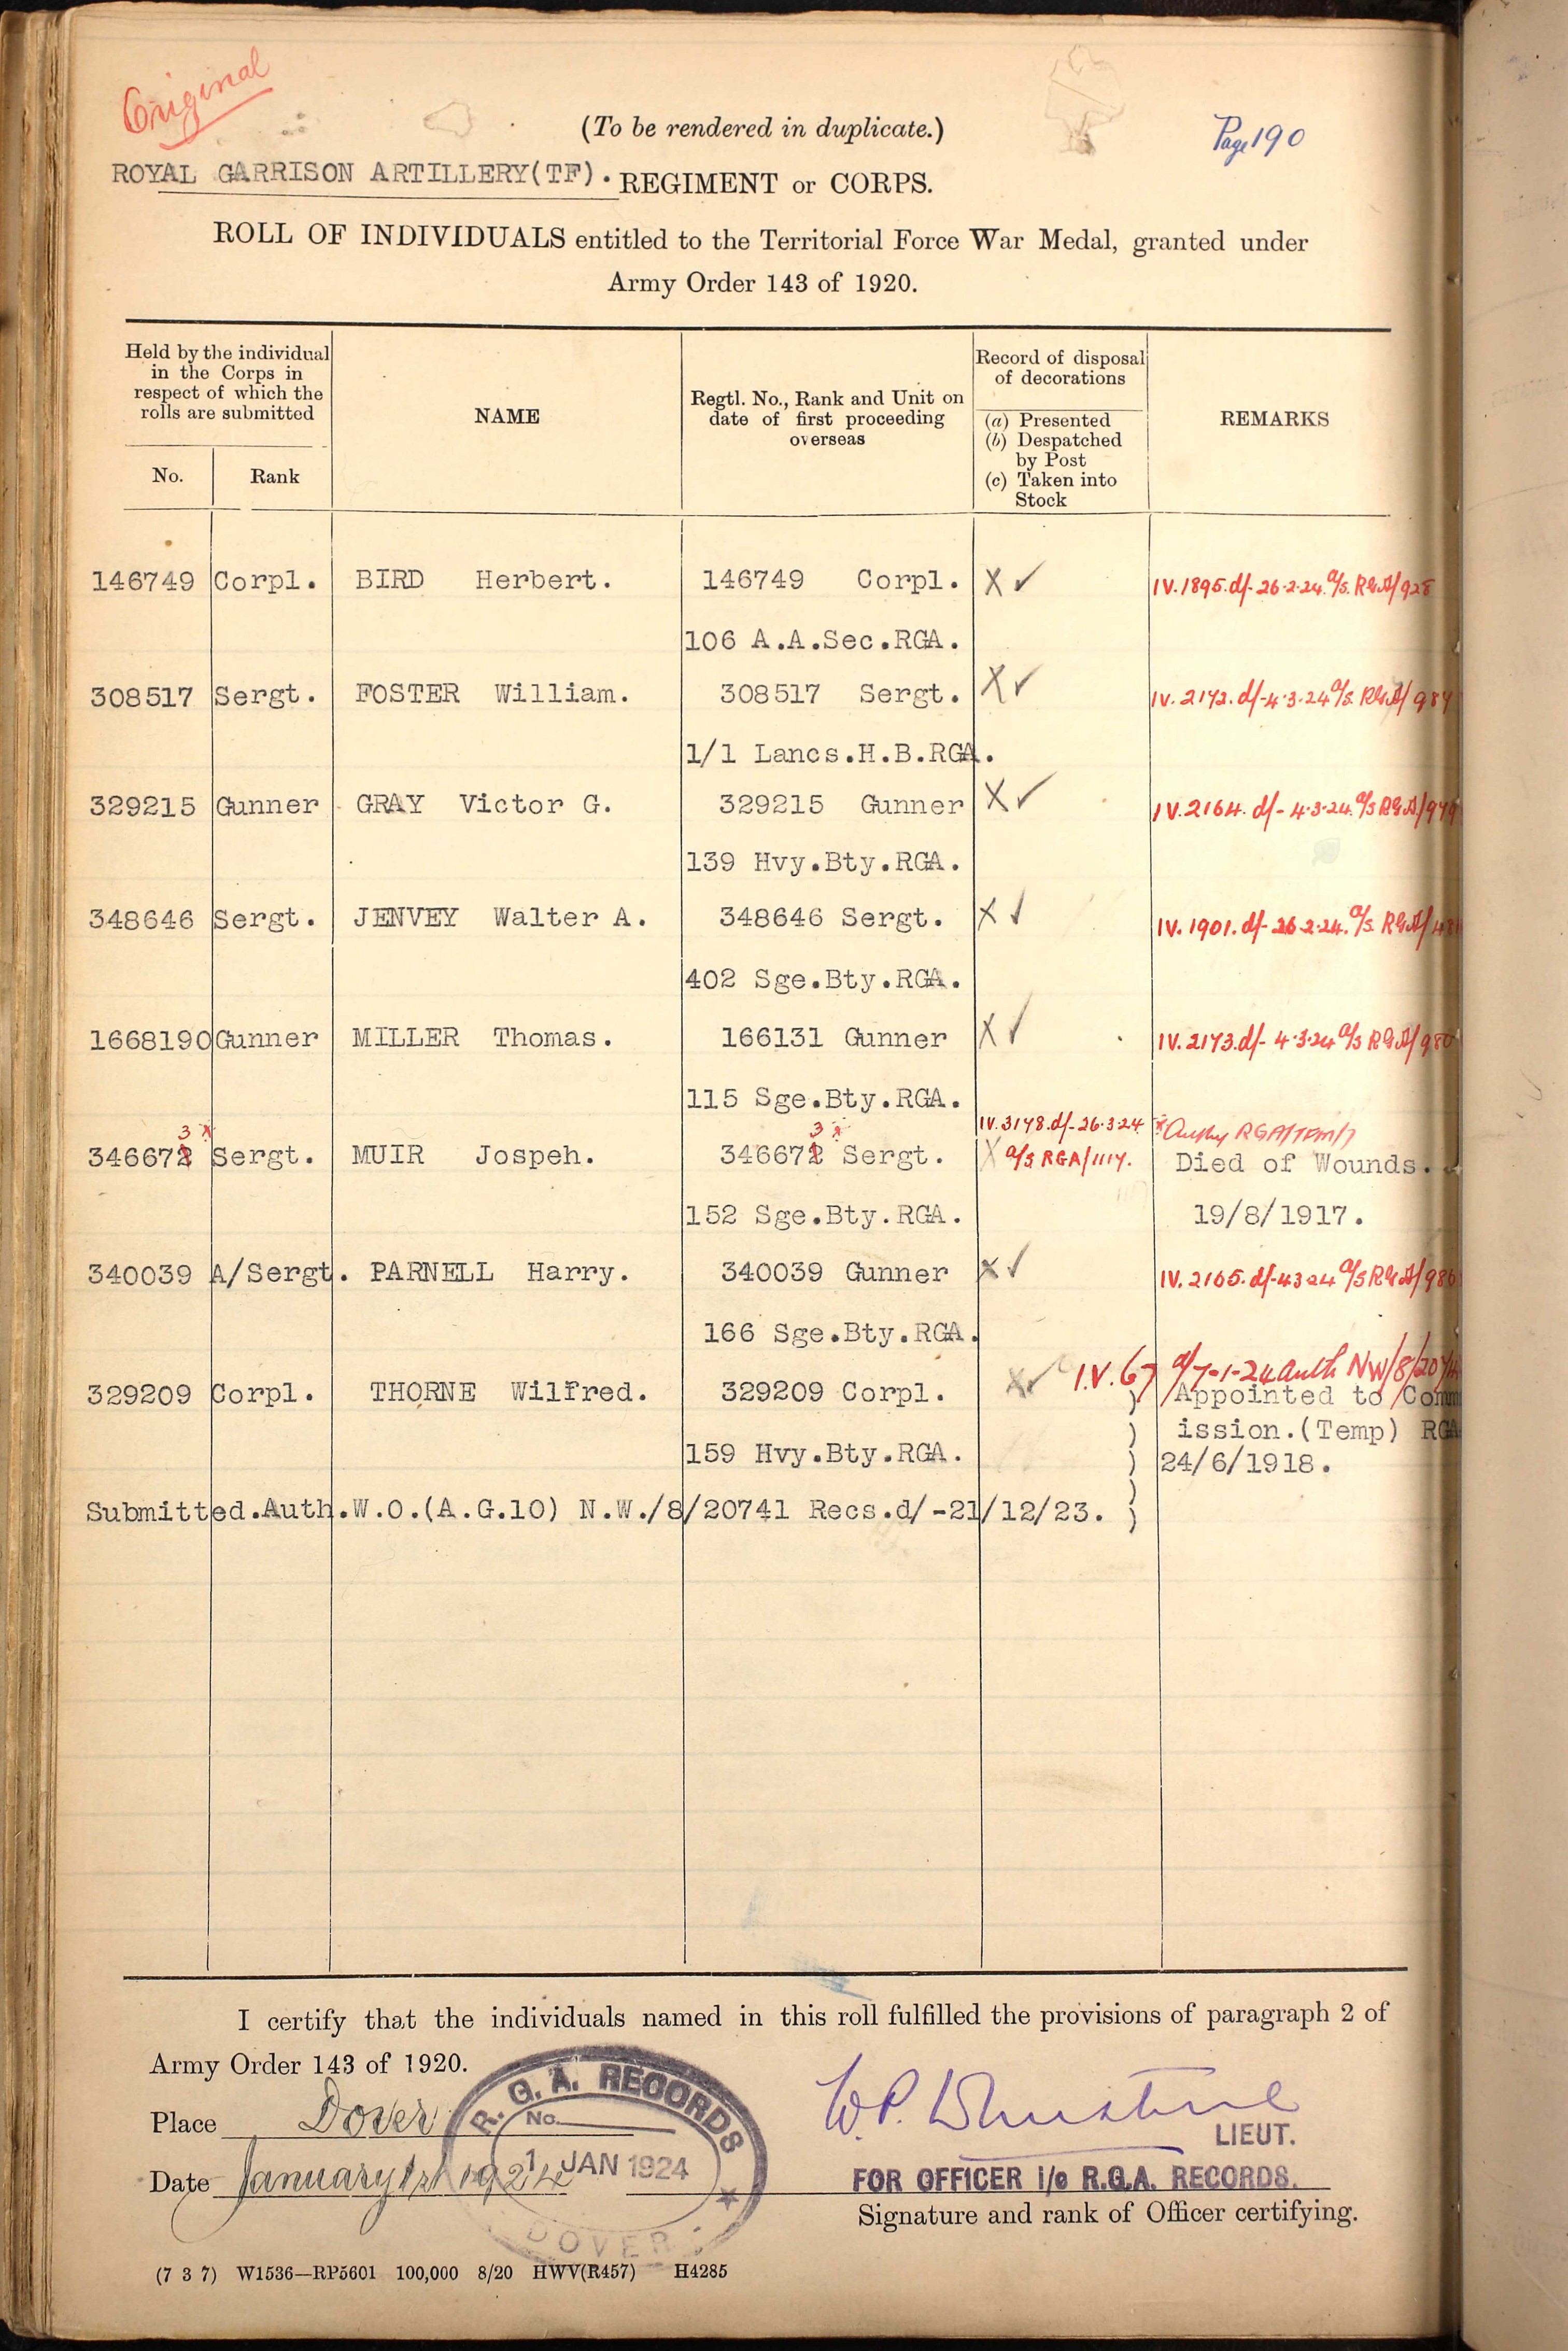 Original
(To be rendered in duplicate.)
Page 190
ROYAL GARRISON ARTILLERY(TF). REGIMENT or CORPS.
ROLL OF INDIVIDUALS entitled to the Territorial Force War Medal, granted under
Army Order 143 of 1920.
Held by the individual
in the Corps in
respect of which the
rolls are submitted
No. Rank
NAME
Regtl. No., Rank and Unit on
date of first proceeding
overseas
Record of disposal
of decorations
(a) Presented
(b) Despatched
by Post
(c) Taken into
Stock
REMARKS
146749 Corpl. BIRD Herbert. 146749 Corpl. X✓ IV.1895.d/- 26.2.24. a/s. RGA/928
106 A.A.Sec.RGA.
308517 Sergt. FOSTER William. 308517 Sergt. X✓ IV.2172.d/-4.3.24 a/s. RGA/987
1/1 Lancs.H.B.RGA.
329215 Gunner GRAY Victor G. 329215 Gunner X✓ IV.2164.d/- 4.3.24. a/s RGA/979
139 Hvy.Bty.RGA.
348646 Sergt. JENVEY Walter A. 348646 Sergt. X✓ IV.1901.d/- 26.2.24. a/s. RGA/
402 Sge.Bty.RGA.
1668190 Gunner MILLER Thomas. 166131 Gunner X✓ IV.2173.d/- 4.3.24 a/s RGA/980
115 Sge.Bty.RGA.
3 x 3 x IV.3178.d/-26.3.24 x RGA/TFM/7
346672 Sergt. MUIR Jospeh. 346672 Sergt. X a/s RGA/1117. Died of Wounds.
152 Sge.Bty.RGA. 19/8/1917.
340039 A/Sergt. PARNELL Harry. 340039 Gunner X✓ IV.2165.d/-4324 a/s RGA/986
166 Sge.Bty.RGA.
I.V.67 d/7-1-24 auth NW/8/207
329209 Corpl. THORNE Wilfred. 329209 Corpl. X✓ ) Appointed to Comm
) ission.(Temp) RGA
159 Hvy.Bty.RGA. ) 24/6/1918.
Submitted.Auth.W.O.(A.G.10) N.W./8/20741 Recs.d/-21/12/23. )
I certify that the individuals named in this roll fulfilled the provisions of paragraph 2 of
Army Order 143 of 1920.
Place Dover
Date January 1st 1924
R.G.A. RECORDS
No.
1 JAN 1924
DOVER
W.P.
LIEUT.
FOR OFFICER i/c R.G.A. RECORDS.
Signature and rank of Officer certifying.
(7 3 7) W1536—RP5601 100,000 8/20 HWV(R457) H4285